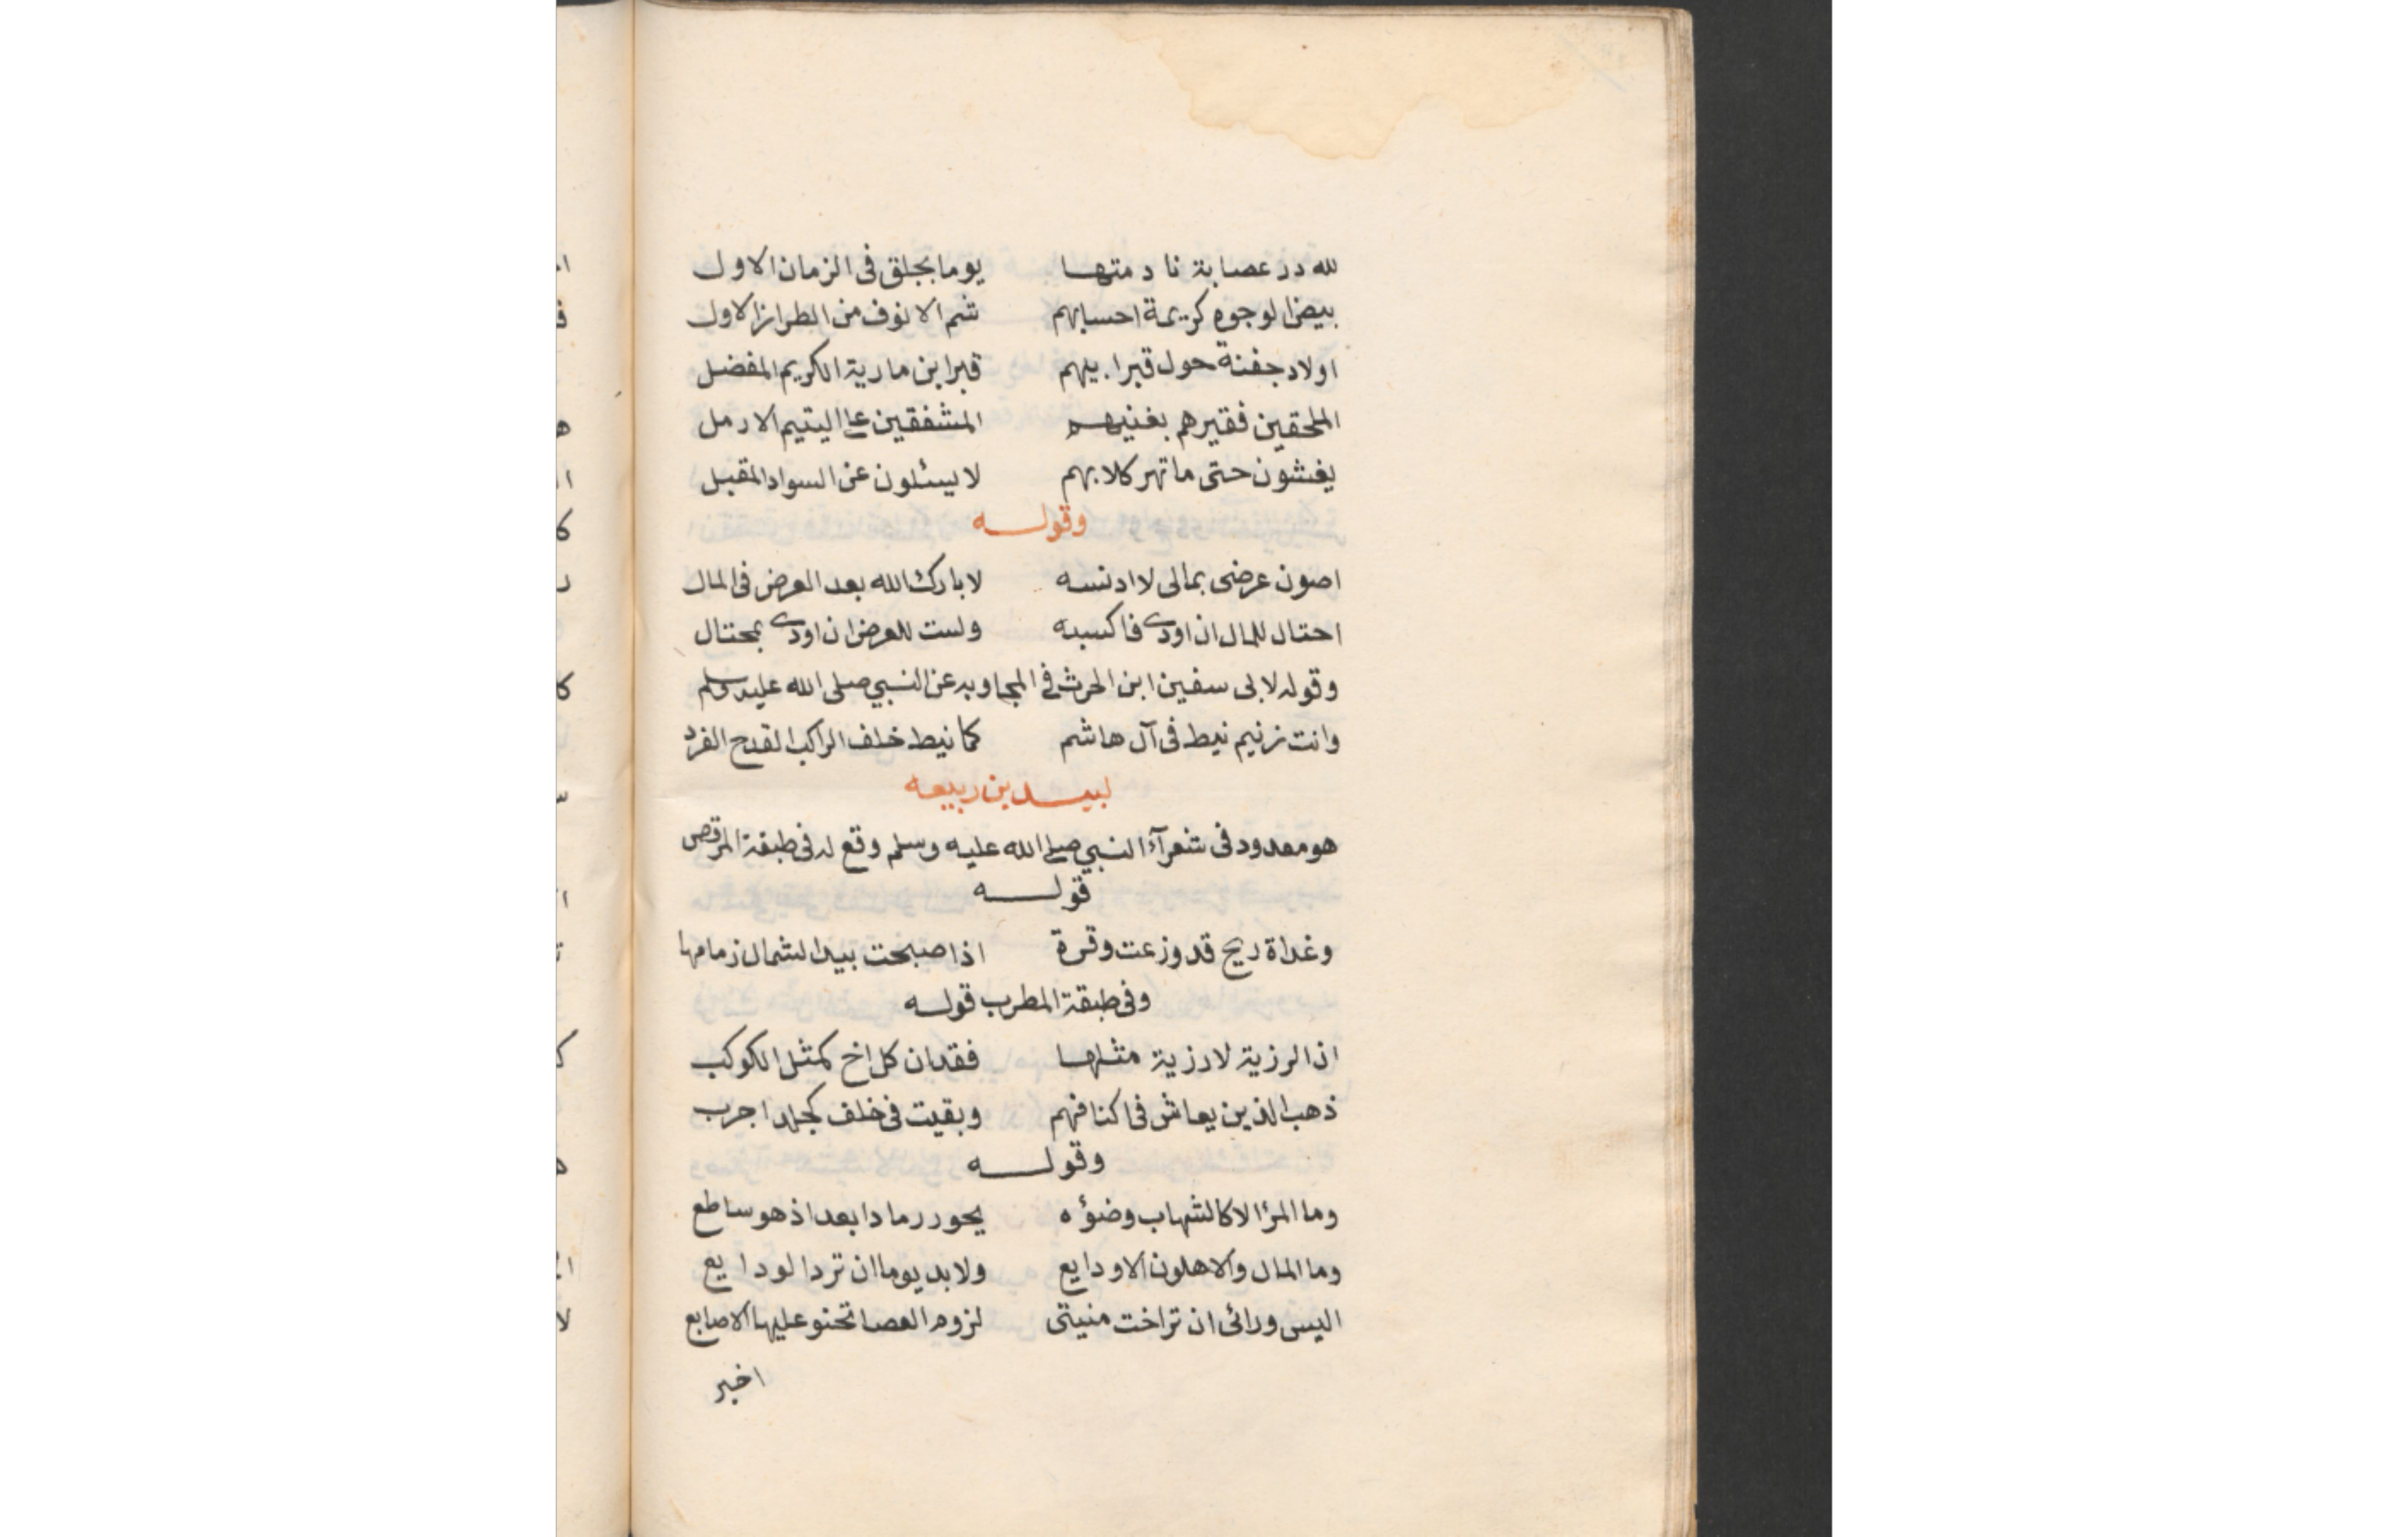 لله در عصابة نادمتها يوما بجلق فى الزمان الاول
بيض الوجوه كريمة احسابهم شم الانوف من الطراز الاول
اولاد جفنة حول قبر ابيهم قبر ابن مارية الكريم المفضل
الملحقين فقيرهم بغنيهم المشفقين على اليتيم الارمل
يغشون حتى ما تهر كلابهم لا يسئلون عن السواد المقبل
وقوله
اصون عرضى بمالى لا ادنسه لا بارك الله بعد العرض فى المال
احتال للمال ان اودى فاكسبه ولست للعرض ان اودى بمحتال
وقوله لابى سفين ابن الحرث فى المجاوبه عن النبي صلى الله عليه وسلم
وانت زنيم نيط فى آل هاشم كما نيط خلف الراكب القدح الفرد
لبيد بن ربيعه
هو معدود فى شعرآء النبي صلى الله عليه وسلم وقع له فى طبقة المرقص
قوله
وغداة ريح قد وزعت وقرة اذا صبحت بيد الشمال زمامها
وفى طبقة المطرب قوله
اذ الرزية لا رزية مثلها فقدان كل اخ كمثل الكوكب
ذهب الذين يعاش فى اكنافهم وبقيت فى خلف كجلد اجرب
وقوله
وما المرؤ الا كالشهاب وضوؤه يحور رمادا بعد اذ هو ساطع
وما المال والاهلون الا ودايع ولا بد يوما ان ترد الودايع
اليس ورائى ان تراخت منيتى لزوم العصا تحنو عليها الاصابع
اخبر